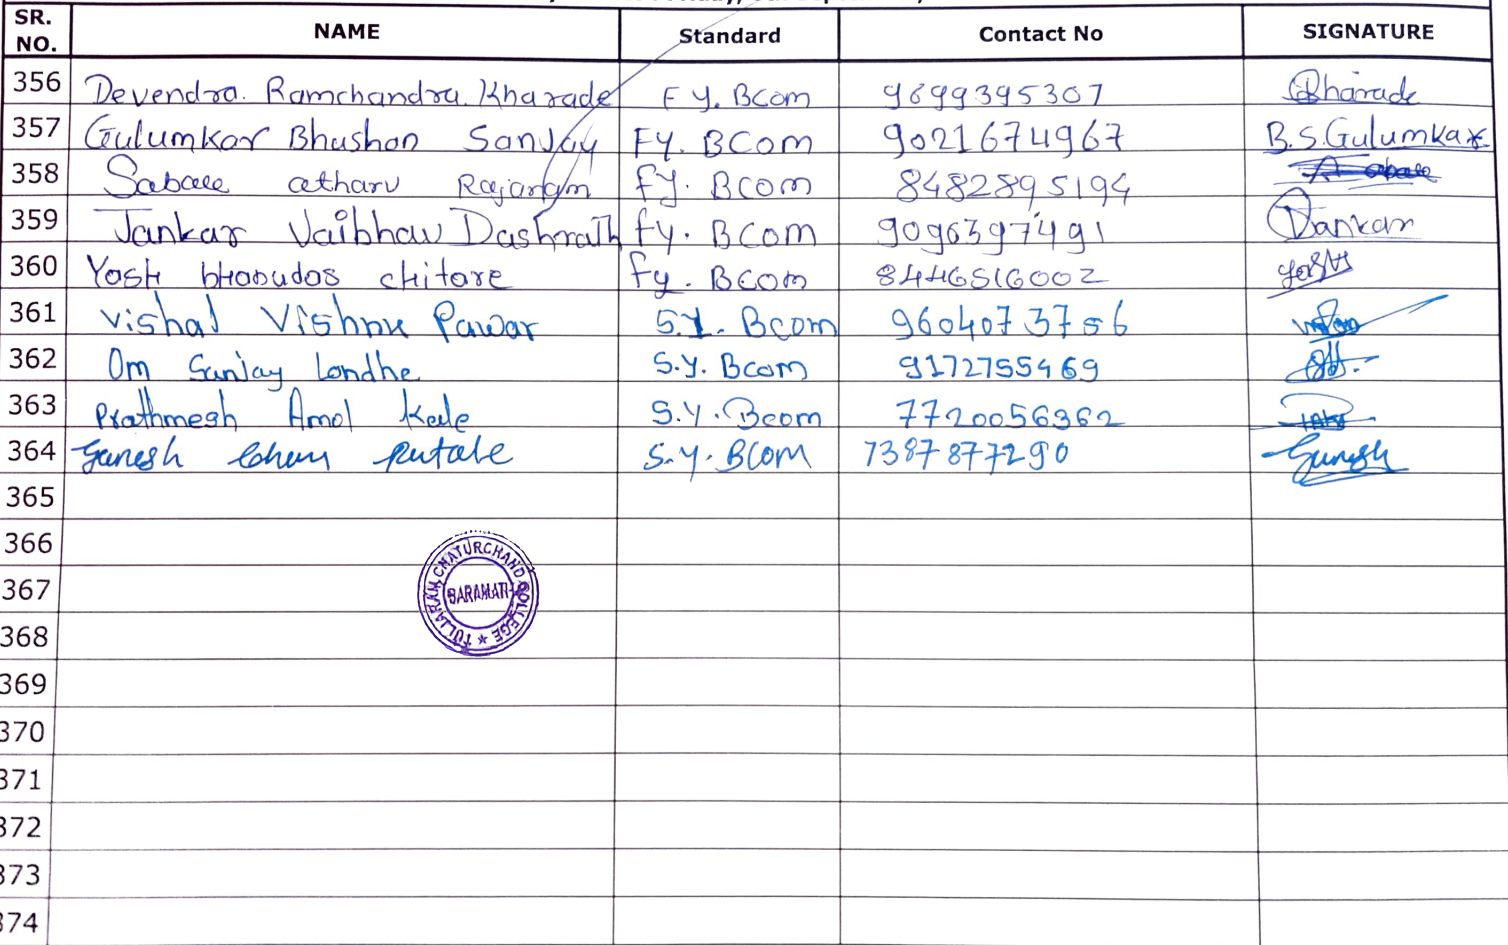 SR. NO. NAME Standard Contact No SIGNATURE
356 Devendra. Ramchandra. Kharade F Y. BCom 9699395307 Kharade
357 Gulumkar Bhushan Sanjay FY. BCom 9021674967 B.S.Gulumkar
358 Sabale atharv Rajaram fy. BCom 8482895194
359 Jankar Vaibhav Dashrath fy. BCom 9096397491 Jankar
360 Yash bhaoudas chitare fy. BCom 8446516002 Yash
361 vishal Vishnu Pawar S.Y. Bcom 9604073756
362 Om Sanjay Londhe S.Y. Bcom 9172755469
363 Prathmesh Amol S.Y. Bcom 7720056362
364 Ganesh S.Y. BCom 7387877290 Ganesh
365
366
367
368
369
370
371
372
373
374
TULJARAM CHATURCHAND COLLEGE ★
BARAMATI